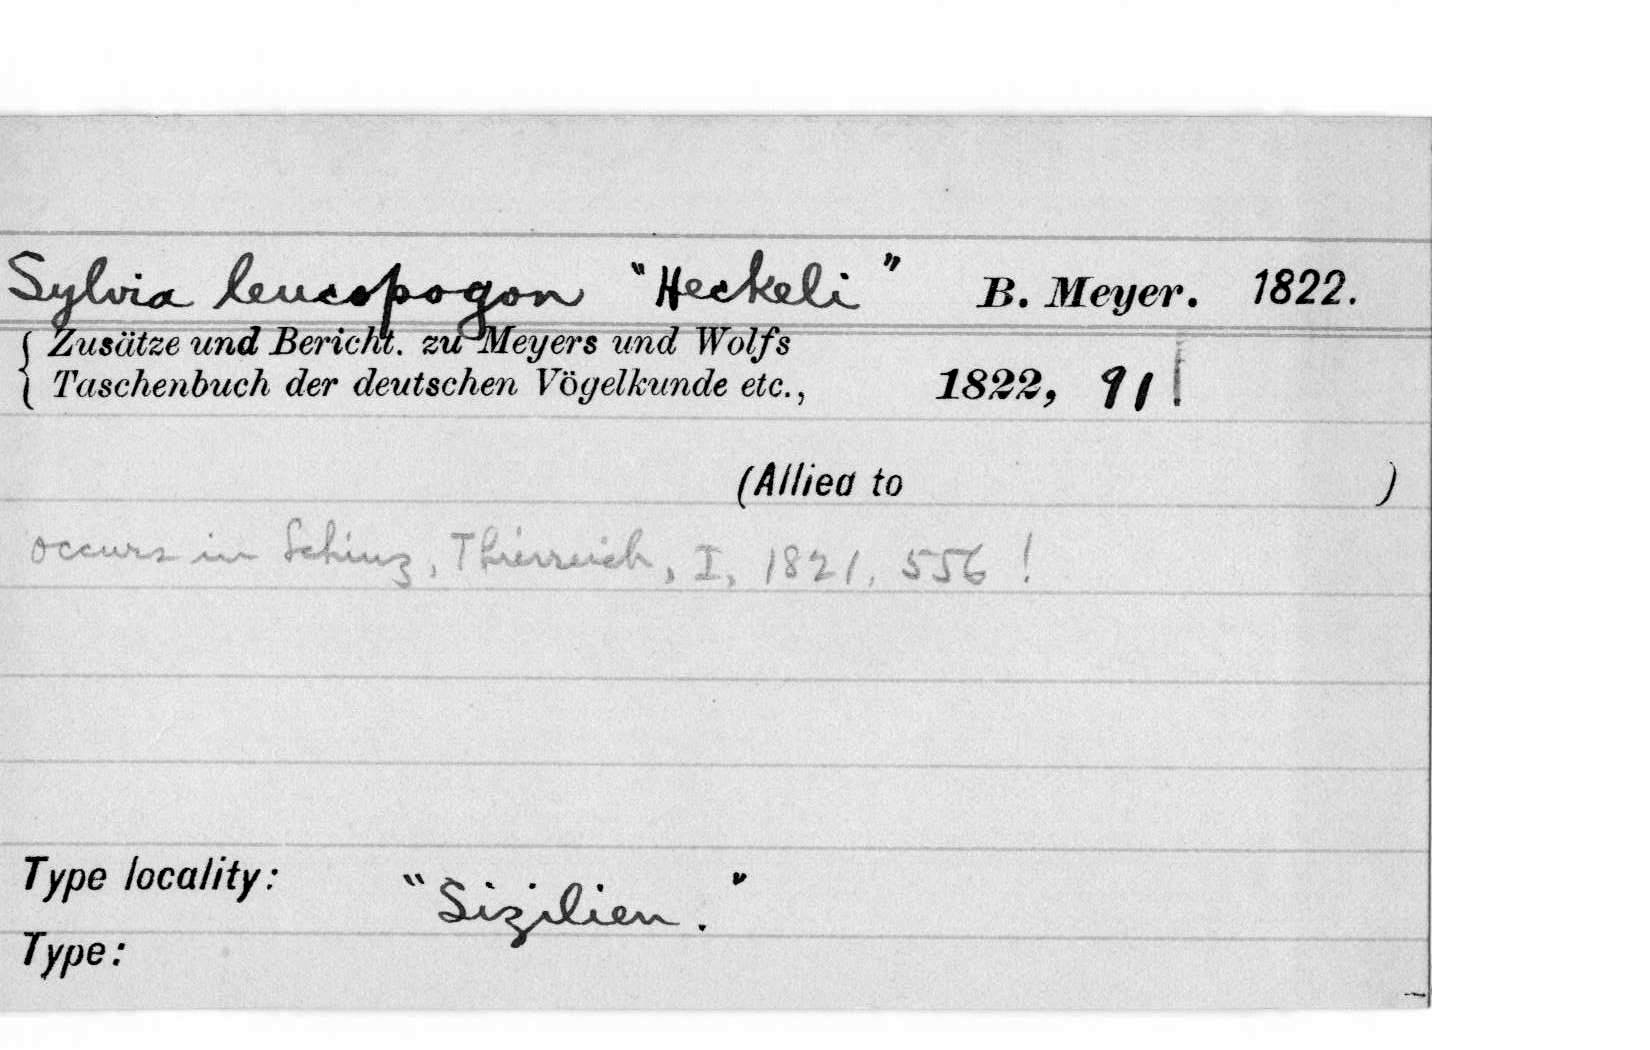 Sylvia leucopogon "Heckeli" B. Meyer. 1822.
{ Zusätze und Bericht. zu Meyers und Wolfs
Taschenbuch der deutschen Vögelkunde etc., 1822, 91
(Allied to )
occurs in Schinz, Thierreich, I, 1821, 556 !
Type locality: "Sizilien."
Type: